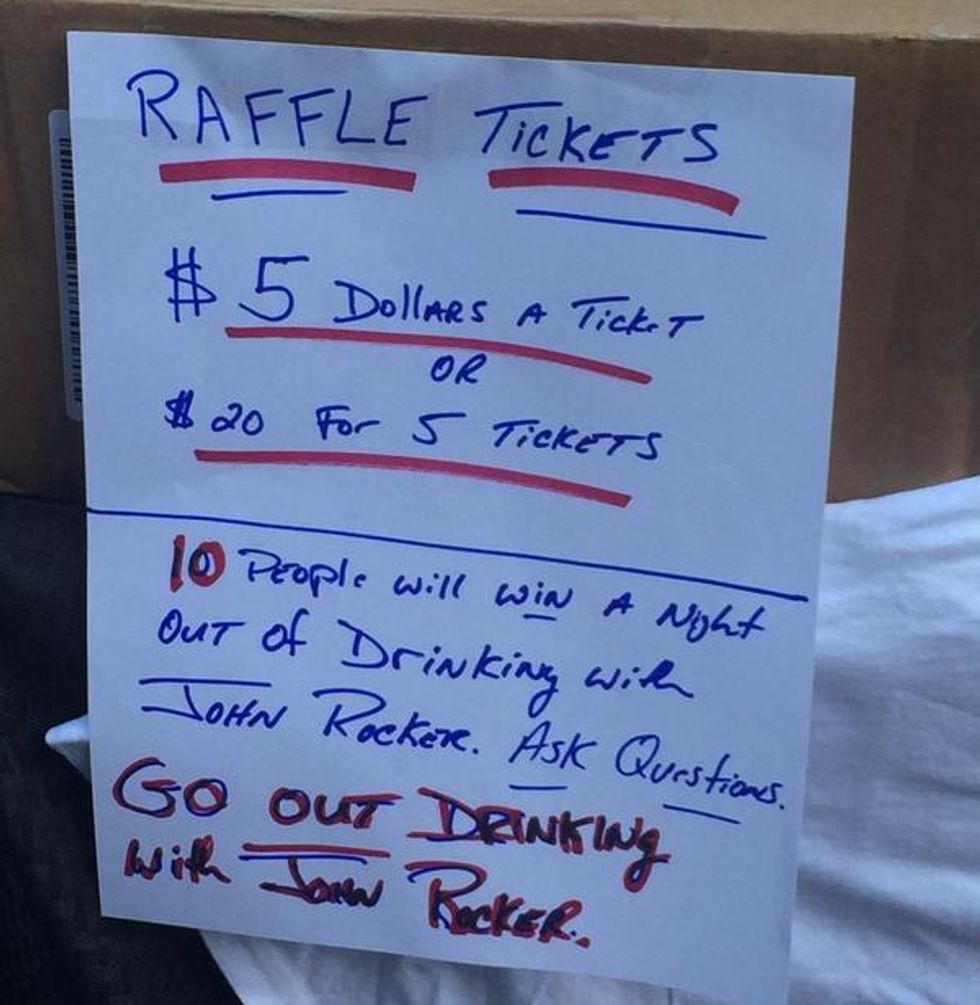 RAFFLE TICKETS
$5 DOLLARS A TICKET
OR
$20 FOR 5 TICKETS
10 PEOPLE WILL WIN A NIGHT
OUT OF DRINKING WITH
JOHN ROCKER. ASK QUESTIONS.
GO OUT DRINKING
WITH JOHN ROCKER.